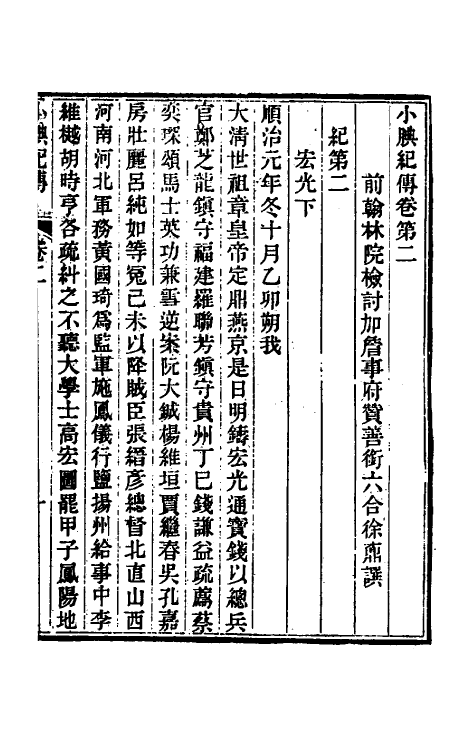 小腆紀傳卷第二
前翰林院檢討加詹事府贊善銜六合徐鼒譔
紀第二
宏光下
順治元年冬十月乙卯朔我
大清世祖章皇帝定鼎燕京是日明鑄宏光通寶錢以總兵
官鄭芝龍鎮守福建羅聯芳鎮守貴州丁巳錢謙益疏薦蔡
奕琛頌馬士英功兼雪逆案阮大鋮楊維垣賈繼春吳孔嘉
房壯麗呂純如等冤己未以降賊臣張縉彥總督北直山西
河南河北軍務黃國琦為監軍施鳳儀行鹽揚州給事中李
維樾胡時亨各疏糾之不聽大學士高宏圖罷甲子鳳陽地
小腆紀傳
卷二
一